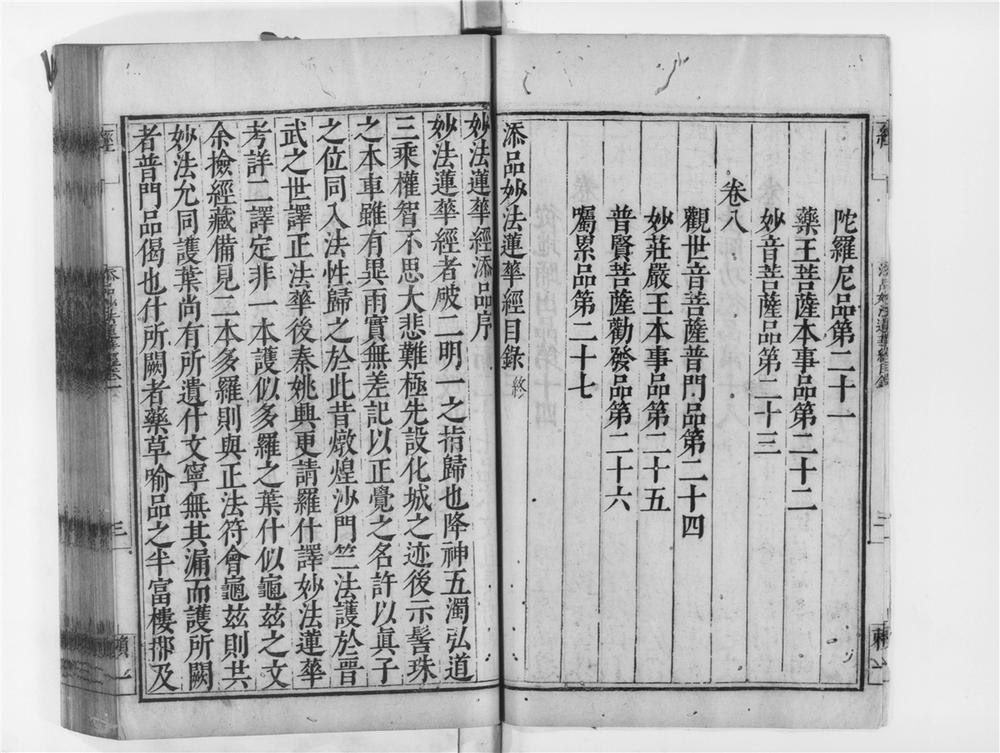 陀羅尼品第二十一
藥王菩薩本事品第二十二
妙音菩薩品第二十三
卷八
觀世音菩薩普門品第二十四
妙莊嚴王本事品第二十五
普賢菩薩勸發品第二十六
囑累品第二十七
添品妙法蓮華經目錄 終
妙法蓮華經添品序
妙法蓮華經者破二明一之指歸也降神五濁弘道
三乘權智不思大悲難極先設化城之迹後示髻珠
之本車雖有異雨實無差記以正覺之名許以眞子
之位同入法性歸之於此昔燉煌沙門竺法護於晉
武之世譯正法華後秦姚興更請羅什譯妙法蓮華
考詳二譯定非一本護似多羅之葉什似龜茲之文
余撿經藏備見二本多羅則與正法符會龜茲則共
妙法允同護葉尚有所遺什文寧無其漏而護所闕
者普門品偈也什所闕者藥草喻品之半富樓那及